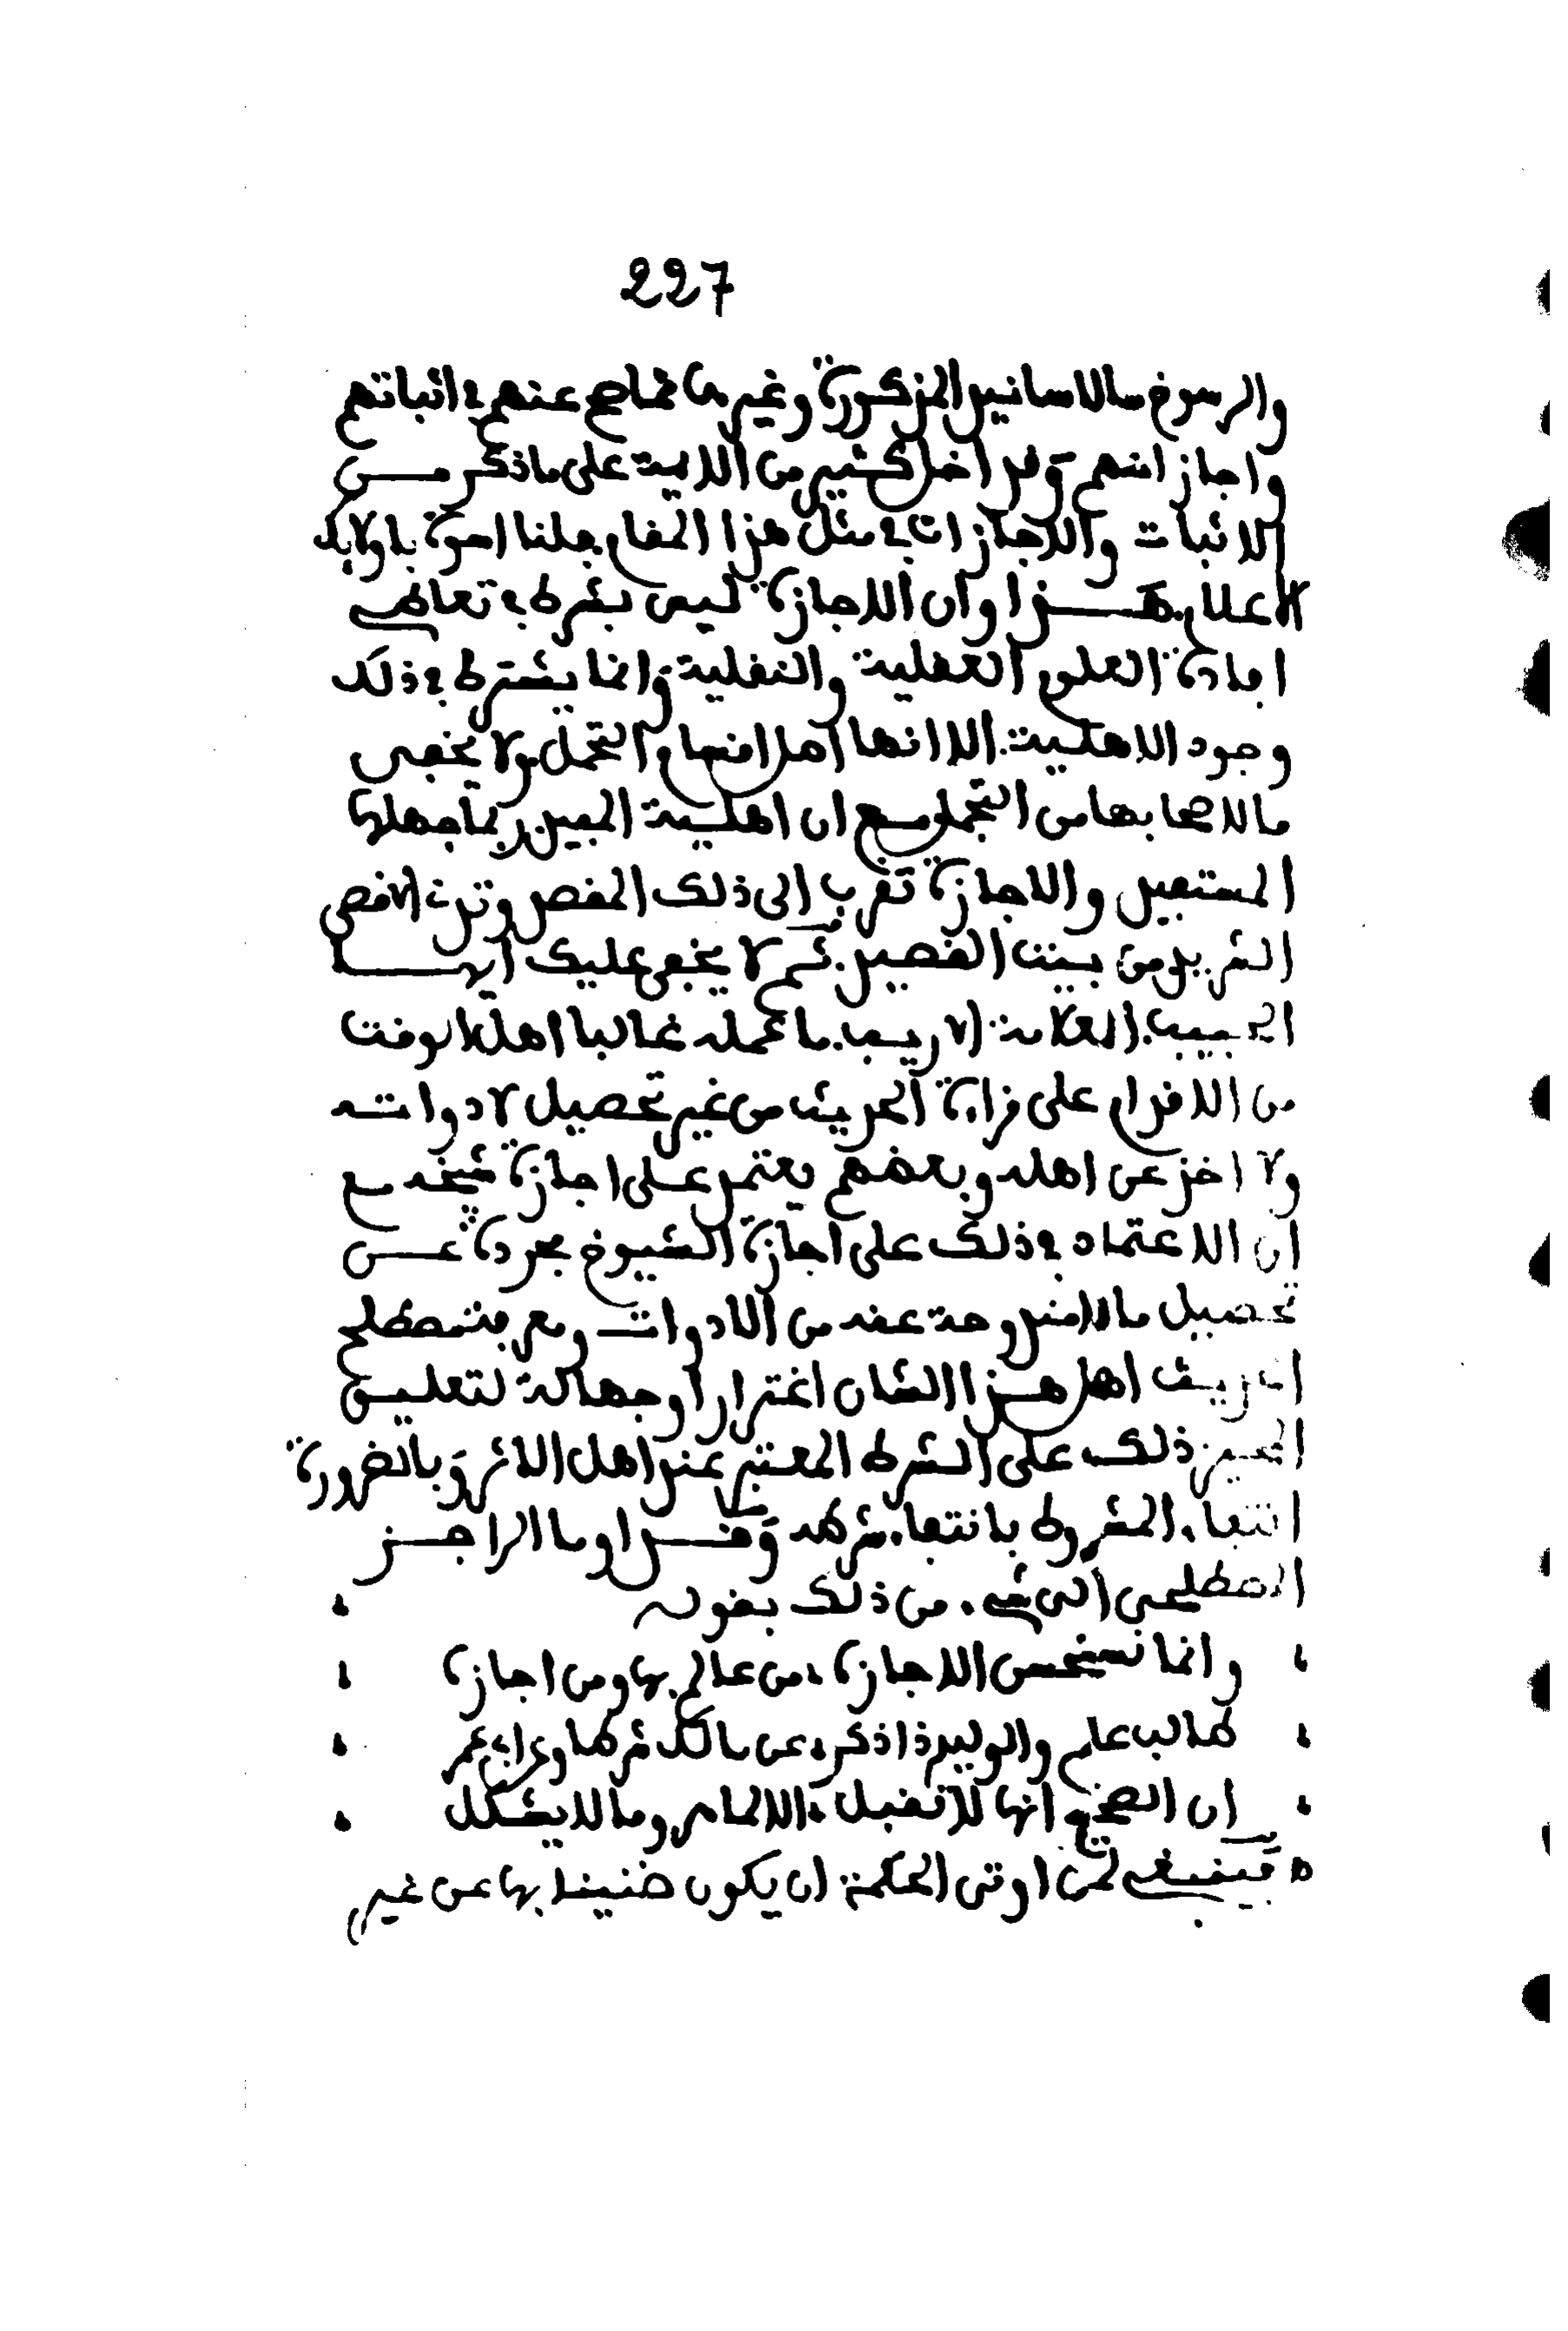 227
والرسوخ بالاسانيد المذكورة وغيرها مما صح عنهم في اثباتهم
واجازاتهم وقد اخل كثير من الايمة على ما ذكر مـــن
الاثبات والاجازات في مثل هذا المقام فلنا اسوة باولايك
الاعلام هـــذا وان الاجازة ليس بشرط في تعاطي
افادة العلوم العقلية والنقلية وانما يشترط في ذلك
وجود الاهلية الا انها احد اقسام التحمل ولا يخفى
ما لاصحابها من التجمل مع ان اهلية المفيد ربما جهلها
المستفيد والاجازة تقرب الى ذلك المقصد وترث الاقصى
الشريد من بيت القصيد ثم لا يخفى عليك ايهـــا
الحبيب العلامة الاريب ما عمله غالبا اهل الوقت
من الاقدام على قراءة الحديث من غير تحصيل لادواتـه
ولا اخذ عن اهله وبعضهم يعتمد على اجازة شيخه مع
ان الاعتماد في ذلك على اجازة الشيوخ مجردة عـــن
تحصيل ما لا مندوحة عنه من الادوات ومعرفة مصطلح
تعريف اهل هذا الشان اغترار او جهالة لتعليـق
المجيز ذلك على الشرط المعتبر عند اهل الاثر وبالضرورة
انتفاء المشروط بانتفاء شرطه وقـــد اوما الراجـــز
المصطلحي الى شيء من ذلك بقوله
وانما تستحسن الاجازة، من عالم بها ومن اجازة
طالب علم والوليد ذا ذكر، عن مالك شرطا وعن ابي عمر
ان الصحيح انها لا تقبل، الا لماهر وما لا يشكل
فينبغي لمن اوتي الحكمة ان يكون ضنينا بها عن غير